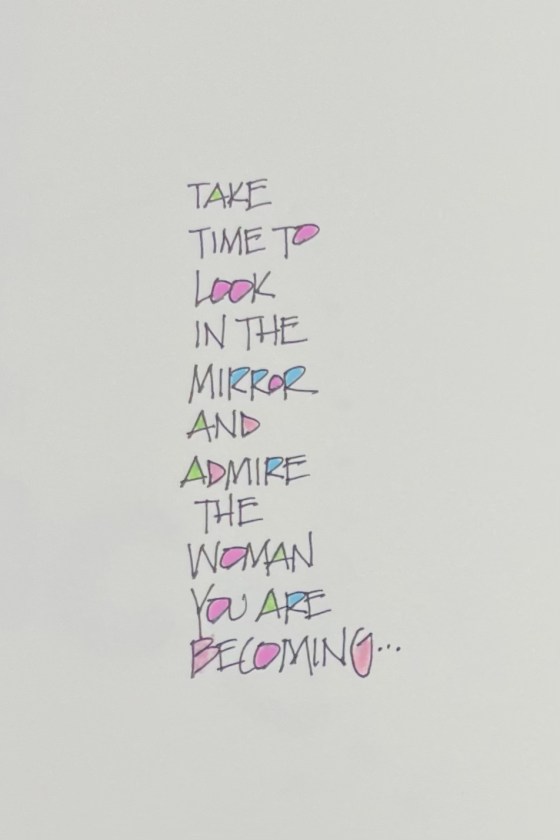 TAKE
TIME TO
LOOK
IN THE
MIRROR
AND
ADMIRE
THE
WOMAN
YOU ARE
BECOMING...